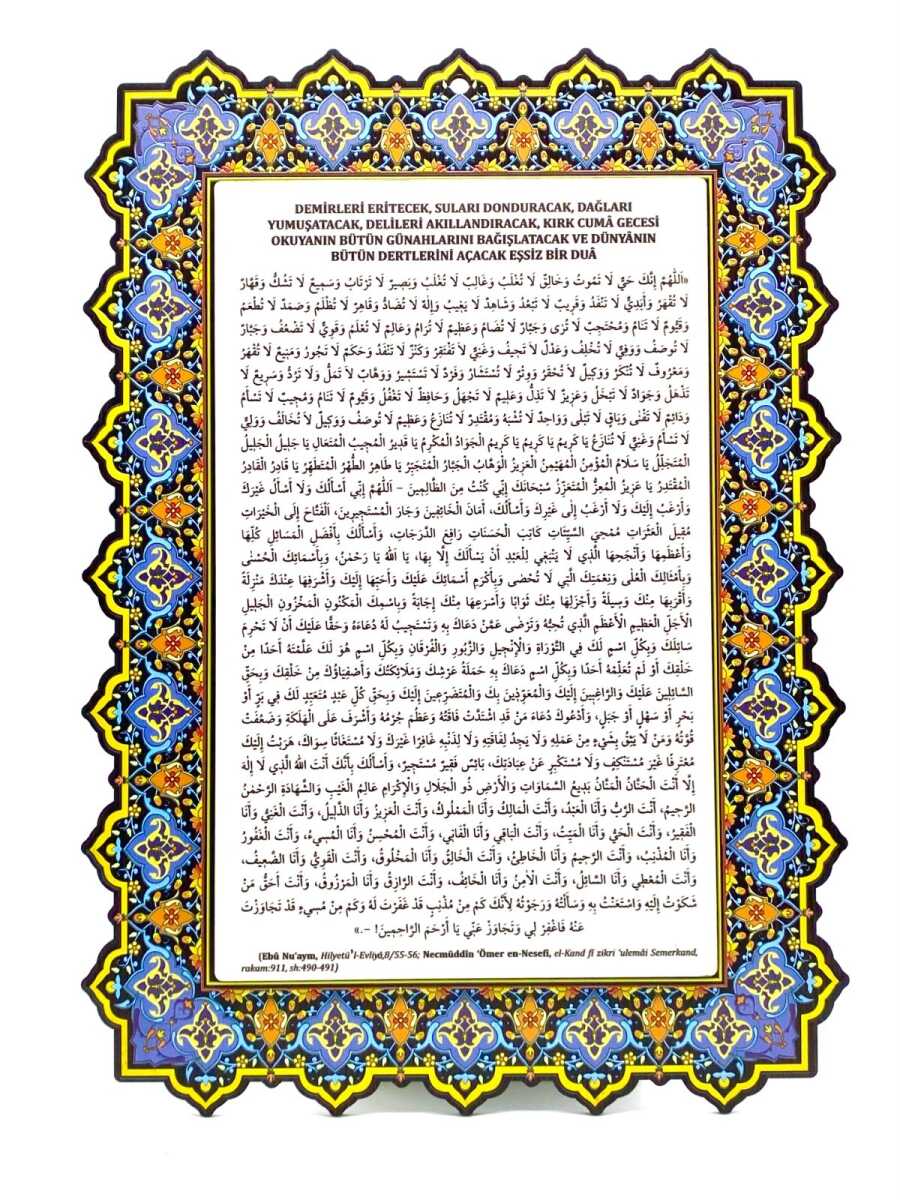 DEMİRLERİ ERİTECEK, SULARI DONDURACAK, DAĞLARI
YUMUŞATACAK, DELİLERİ AKILLANDIRACAK, KIRK CUMÂ GECESİ
OKUYANIN BÜTÜN GÜNAHLARINI BAĞIŞLATACAK VE DÜNYÂNIN
BÜTÜN DERTLERİNİ AÇACAK EŞSİZ BİR DUÂ
«اَللّٰهُمَّ إِنَّكَ حَيٌّ لَا تَمُوتُ وَخَالِقٌ لَا تُغْلَبُ وَغَالِبٌ لَا تُغْلَبُ وَبَصِيرٌ لَا تَرْتَابُ وَسَمِيعٌ لَا تَشُكُّ وَقَهَّارٌ
لَا تُقْهَرُ وَأَبَدِيٌّ لَا تَنْفَدُ وَقَرِيبٌ لَا تَبْعُدُ وَشَاهِدٌ لَا يَغِيبُ وَإِلٰهٌ لَا تُضَادُّ وَقَاهِرٌ لَا تُظْلَمُ وَصَمَدٌ لَا تُطْعَمُ
وَقَيُّومٌ لَا تَنَامُ وَمُحْتَجِبٌ لَا تُرَى وَجَبَّارٌ لَا تُضَامُ وَعَظِيمٌ لَا تُرَامُ وَعَالِمٌ لَا تُعَلَّمُ وَقَوِيٌّ لَا تَضْعُفُ وَجَبَّارٌ
لَا تُوصَفُ وَوَفِيٌّ لَا تُخْلِفُ وَعَدْلٌ لَا تَحِيفُ وَغَنِيٌّ لَا تَفْتَقِرُ وَكَنْزٌ لَا تَنْفَدُ وَحَكَمٌ لَا تَجُورُ وَمَنِيعٌ لَا تُقْهَرُ
وَمَعْرُوفٌ لَا تُنْكَرُ وَوَكِيلٌ لَا تُحْقَرُ وَوِتْرٌ لَا تُسْتَشَارُ وَفَرْدٌ لَا تَسْتَشِيرُ وَوَهَّابٌ لَا تَمَلُّ وَلَا تَرُدُّ وَسَرِيعٌ لَا
تَذْهَلُ وَجَوَادٌ لَا تَبْخَلُ وَعَزِيزٌ لَا تَذِلُّ وَعَلِيمٌ لَا تَجْهَلُ وَحَافِظٌ لَا تَغْفُلُ وَقَيُّومٌ لَا تَنَامُ وَمُجِيبٌ لَا تَسْأَمُ
وَدَائِمٌ لَا تَفْنَى وَبَاقٍ لَا تَبْلَى وَوَاحِدٌ لَا تُشْبَهُ وَمُقْتَدِرٌ لَا تُنَازَعُ وَعَظِيمٌ لَا تُوصَفُ وَوَكِيلٌ لَا تُخَالَفُ وَوَلِيٌّ
لَا تَسْأَمُ وَغَنِيٌّ لَا تُنَازَعُ يَا كَرِيمُ يَا كَرِيمُ يَا كَرِيمُ الْجَوَادُ الْمُكَرِّمُ يَا قَدِيرُ الْمُجِيبُ الْمُتَعَالِ يَا جَلِيلُ الْجَلِيلُ
الْمُتَجَلِّلُ يَا سَلَامُ الْمُؤْمِنُ الْمُهَيْمِنُ الْعَزِيزُ الْوَهَّابُ الْجَبَّارُ الْمُتَجَبِّرُ يَا طَاهِرُ الطُّهْرُ الْمُتَطَهِّرُ يَا قَادِرُ الْقَادِرُ
الْمُقْتَدِرُ يَا عَزِيزُ الْمُعِزُّ الْمُتَعَزِّزُ سُبْحَانَكَ إِنِّي كُنْتُ مِنَ الظَّالِمِينَ – اَللّٰهُمَّ إِنِّي أَسْأَلُكَ وَلَا أَسْأَلُ غَيْرَكَ
وَأَرْغَبُ إِلَيْكَ وَلَا أَرْغَبُ إِلَى غَيْرِكَ وَأَسْأَلُكَ، أَمَانَ الْخَائِفِينَ وَجَارَ الْمُسْتَجِيرِينَ، اَلْفَتَّاحَ إِلَى الْخَيْرَاتِ
مُقِيلَ الْعَثَرَاتِ مُمْحِيَ السَّيِّئَاتِ كَاتِبَ الْحَسَنَاتِ رَافِعَ الدَّرَجَاتِ، وَأَسْأَلُكَ بِأَفْضَلِ الْمَسَائِلِ كُلِّهَا
وَأَعْظَمِهَا وَأَنْجَحِهَا الَّذِي لَا يَنْبَغِي لِلْعَبْدِ أَنْ يَسْأَلَكَ إِلَّا بِهَا، يَا اَللّٰهُ يَا رَحْمٰنُ، وَبِأَسْمَائِكَ الْحُسْنَى
وَبِأَمْثَالِكَ الْعُلْيَا وَبِنِعْمَتِكَ الَّتِي لَا تُحْصَى وَبِأَكْرَمِ أَسْمَائِكَ عَلَيْكَ وَأَحَبِّهَا إِلَيْكَ وَأَشْرَفِهَا عِنْدَكَ مَنْزِلَةً
وَأَقْرَبِهَا مِنْكَ وَسِيلَةً وَأَجْزَلِهَا مِنْكَ ثَوَابًا وَأَسْرَعِهَا مِنْكَ إِجَابَةً وَبِاسْمِكَ الْمَكْنُونِ الْمَخْزُونِ الْجَلِيلِ
الْأَجَلِّ الْعَظِيمِ الْأَعْظَمِ الَّذِي تُحِبُّهُ وَتَرْضَى عَمَّنْ دَعَاكَ بِهِ وَتَسْتَجِيبُ لَهُ دُعَاءَهُ وَحَقًّا عَلَيْكَ أَنْ لَا تَحْرِمَ
سَائِلَكَ وَبِكُلِّ اسْمٍ لَكَ فِي التَّوْرَاةِ وَالْإِنْجِيلِ وَالزَّبُورِ وَالْفُرْقَانِ وَبِكُلِّ اسْمٍ هُوَ لَكَ عَلَّمْتَهُ أَحَدًا مِنْ
خَلْقِكَ أَوْ لَمْ تُعَلِّمْهُ أَحَدًا وَبِكُلِّ اسْمٍ دَعَاكَ بِهِ حَمَلَةُ عَرْشِكَ وَمَلَائِكَتُكَ وَأَصْفِيَاؤُكَ مِنْ خَلْقِكَ وَبِحَقِّ
السَّائِلِينَ عَلَيْكَ وَالرَّاغِبِينَ إِلَيْكَ وَالْمُعَوِّذِينَ بِكَ وَالْمُتَضَرِّعِينَ إِلَيْكَ وَبِحَقِّ كُلِّ عَبْدٍ مُتَعَبِّدٍ لَكَ فِي بَرٍّ أَوْ
بَحْرٍ أَوْ سَهْلٍ أَوْ جَبَلٍ، وَأَدْعُوكَ دُعَاءَ مَنْ قَدِ اشْتَدَّتْ فَاقَتُهُ وَعَظُمَ جُرْمُهُ وَأَشْرَفَ عَلَى الْهَلَكَةِ وَضَعُفَتْ
قُوَّتُهُ وَمَنْ لَا يَثِقُ بِشَيْءٍ مِنْ عَمَلِهِ وَلَا يَجِدُ لِفَاقَتِهِ وَلَا لِذَنْبِهِ غَافِرًا غَيْرَكَ وَلَا مُسْتَغَاثًا سِوَاكَ، هَرَبْتُ إِلَيْكَ
مُعْتَرِفًا غَيْرَ مُسْتَنْكِفٍ وَلَا مُسْتَكْبِرٍ عَنْ عِبَادَتِكَ، بَائِسٌ فَقِيرٌ مُسْتَجِيرٌ، وَأَسْأَلُكَ بِأَنَّكَ أَنْتَ اللّٰهُ الَّذِي لَا إِلٰهَ
إِلَّا أَنْتَ الْحَنَّانُ الْمَنَّانُ بَدِيعُ السَّمَاوَاتِ وَالْأَرْضِ ذُو الْجَلَالِ وَالْإِكْرَامِ عَالِمُ الْغَيْبِ وَالشَّهَادَةِ الرَّحْمٰنُ
الرَّحِيمُ، أَنْتَ الرَّبُّ وَأَنَا الْعَبْدُ، وَأَنْتَ الْمَالِكُ وَأَنَا الْمَمْلُوكُ، وَأَنْتَ الْعَزِيزُ وَأَنَا الذَّلِيلُ، وَأَنْتَ الْغَنِيُّ وَأَنَا
الْفَقِيرُ، وَأَنْتَ الْحَيُّ وَأَنَا الْمَيِّتُ، وَأَنْتَ الْبَاقِي وَأَنَا الْفَانِي، وَأَنْتَ الْمُحْسِنُ وَأَنَا الْمُسِيءُ، وَأَنْتَ الْغَفُورُ
وَأَنَا الْمُذْنِبُ، وَأَنْتَ الرَّحِيمُ وَأَنَا الْخَاطِئُ، وَأَنْتَ الْخَالِقُ وَأَنَا الْمَخْلُوقُ، وَأَنْتَ الْقَوِيُّ وَأَنَا الضَّعِيفُ،
وَأَنْتَ الْمُعْطِي وَأَنَا السَّائِلُ، وَأَنْتَ الْأَمِنُ وَأَنَا الْخَائِفُ، وَأَنْتَ الرَّازِقُ وَأَنَا الْمَرْزُوقُ، وَأَنْتَ أَحَقُّ مَنْ
شَكَوْتُ إِلَيْهِ وَاسْتَعَنْتُ بِهِ وَسَأَلْتُهُ وَرَجَوْتُهُ لِأَنَّكَ كَمْ مِنْ مُذْنِبٍ قَدْ غَفَرْتَ لَهُ وَكَمْ مِنْ مُسِيءٍ قَدْ تَجَاوَزْتَ
عَنْهُ فَاغْفِرْ لِي وَتَجَاوَزْ عَنِّي يَا أَرْحَمَ الرَّاحِمِينَ! –.»
(Ebû Nu'aym, Hilyetü'l-Evliyâ,8/55-56; Necmüddîn 'Ömer en-Nesefî, el-Kand fî zikri 'ulemâi Semerkand,
rakam:911, sh:490-491)